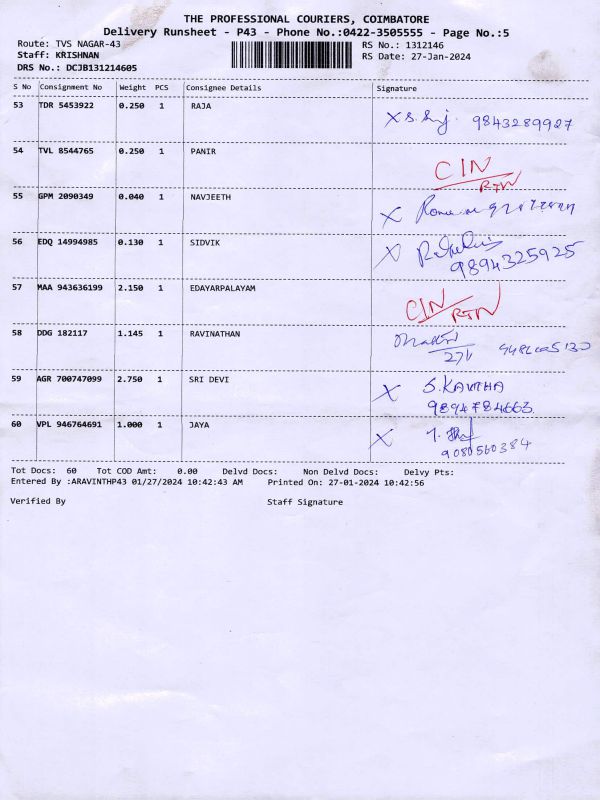 THE PROFESSIONAL COURIERS, COIMBATORE
Delivery Runsheet - P43 - Phone No.:0422-3505555 - Page No.:5
Route: TVS NAGAR-43 RS No.: 1312146
Staff: KRISHNAN RS Date: 27-Jan-2024
DRS No.: DCJB131214605
S No Consignment No Weight PCS Consignee Details Signature
53 TDR 5453922 0.250 1 RAJA X 9843289927
54 TVL 8544765 0.250 1 PANIR CIN RTN
55 GPM 2090349 0.040 1 NAVJEETH X
56 EDQ 14994985 0.130 1 SIDVIK X
9894325925
57 MAA 943636199 2.150 1 EDAYARPALAYAM CIN RTN
58 DDG 182117 1.145 1 RAVINATHAN
27/1
59 AGR 700747099 2.750 1 SRI DEVI X S.KAVITHA
9894784663
60 VPL 946764691 1.000 1 JAYA X
9080560384
Tot Docs: 60 Tot COD Amt: 0.00 Delvd Docs: Non Delvd Docs: Delvy Pts:
Entered By :ARAVINTHP43 01/27/2024 10:42:43 AM Printed On: 27-01-2024 10:42:56
Verified By Staff Signature